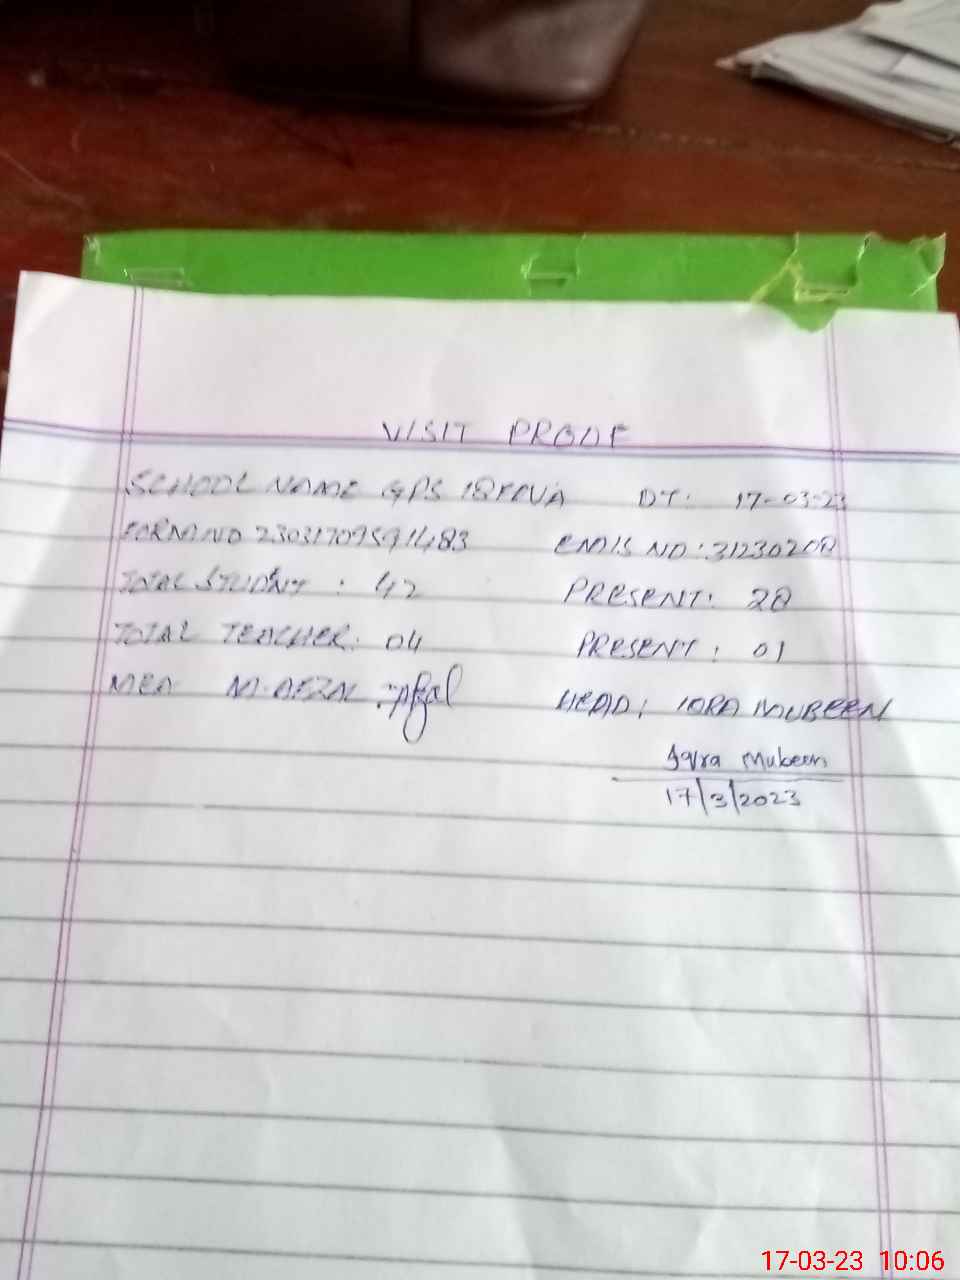 VISIT PROOF
SCHOOL NAME GPS DT: 17-03-23
FORM NO 230317095911483 EMIS NO: 31230208
TOTAL STUDNT: 42 PRESENT: 28
TOTAL TEACHER: 04 PRESENT: 01
MEA M. AFZAL: Afzal HEAD: IQRA MUBEEN
Iqra Mubeen
17/3/2023
17-03-23 10:06